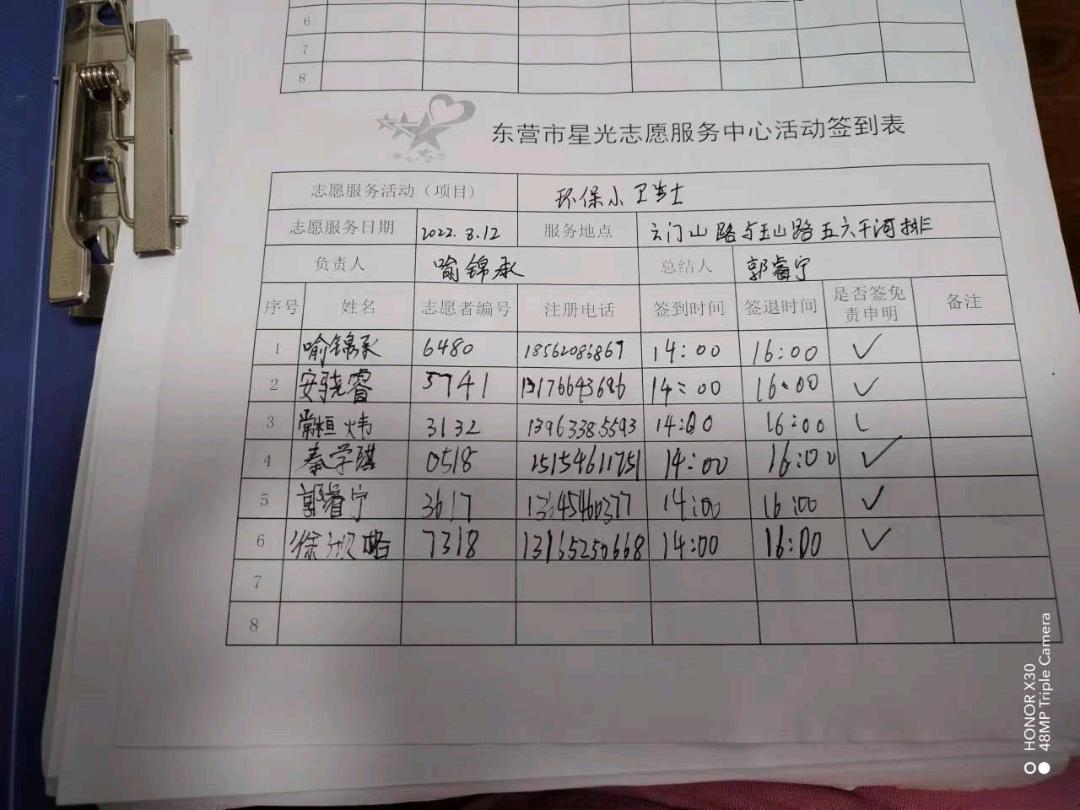 6
7
8
东营市星光志愿服务中心活动签到表
志愿服务活动（项目） 环保小卫士
志愿服务日期 2022.3.12 服务地点 云门山路与玉山路五六干河排
负责人 喻锦承 总结人 郭睿宁
序号 姓名 志愿者编号 注册电话 签到时间 签退时间 是否签免责申明 备注
1 喻锦承 6480 18562086867 14:00 16:00 ✓
2 安骁睿 5741 13176643686 14:00 16:00 ✓
3 常桓炜 3132 13963385593 14:00 16:00 ✓
4 秦学琪 0518 15154611751 14:00 16:00 ✓
5 郭睿宁 3617 14:00 16:00 ✓
6 徐 7318 14:00 16:00 ✓
7
8
HONOR X30
48MP Triple Camera